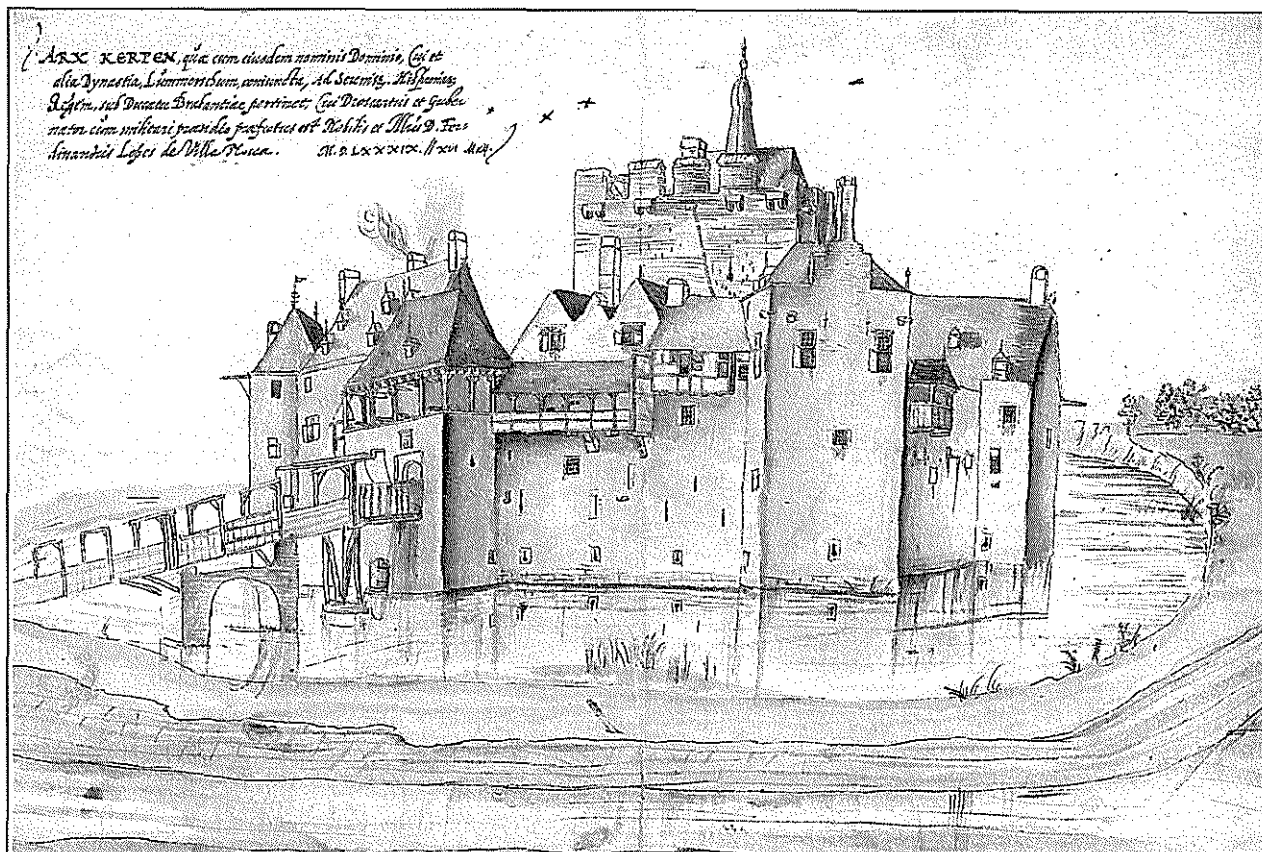 ARX KERPEN, quæ cum eiusdem nominis Dominio, Cui et
alia Dynastia, Lummerschum, coniuncta, Ad Sereniss. Hispaniar.
Regem, sub Ducatu Brabantiæ pertinet; Cui Drossartus et Guber
nator cum militari præsidio præfectus est Nobilis et Illus D. Fer
dinandus Lopes de Villa Noua. M.D.LXXXIX. XVI